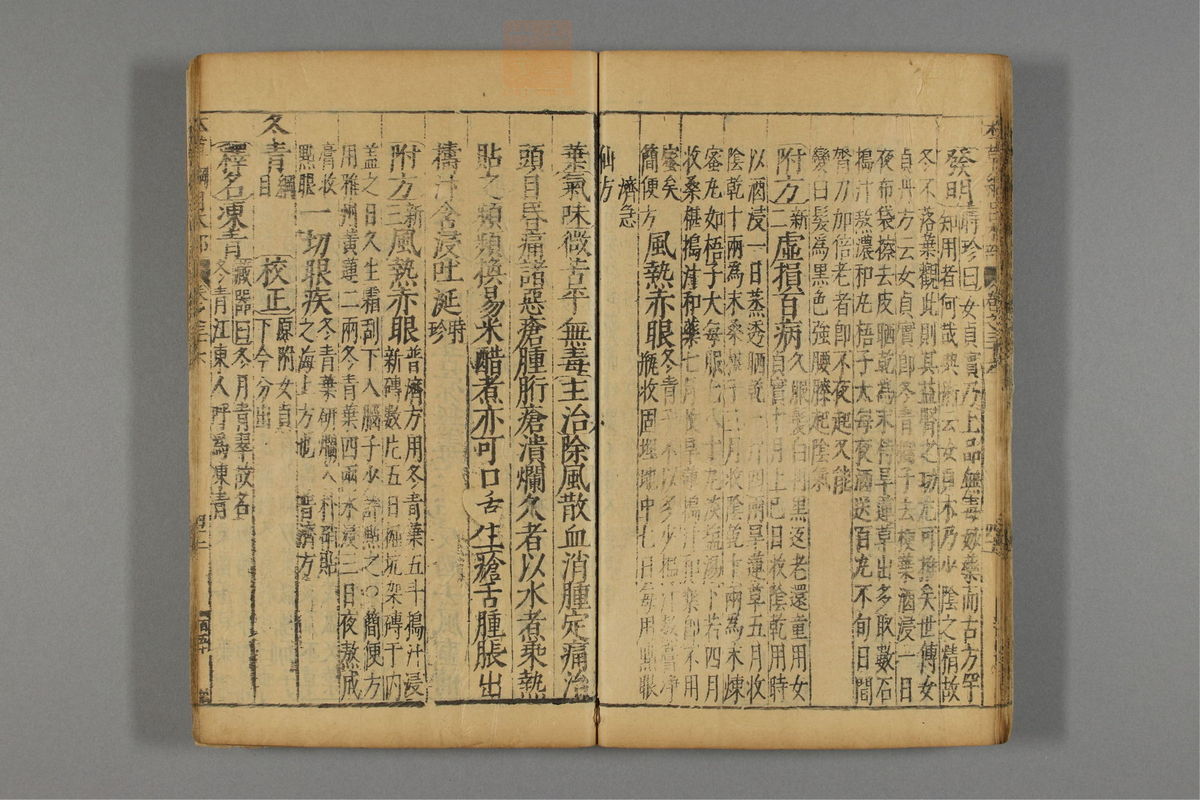 發明時珍曰女貞實乃上品無毒妙藥而古方罕
知用者何哉典術云女貞木乃少陰之精故
冬不落葉觀此則其益腎之功尤可推矣世傳女
貞丹方云女貞實即冬青樹子去梗葉酒浸一日
夜布袋擦去皮晒乾為末待旱蓮草出多取數石
搗汁熬濃和丸梧子大每夜酒送百丸不旬日間
膂力加倍老者即不夜起又能
變白髮為黑色強腰膝起陰氣
附方新二虛損百病久服髮白再黑返老還童用女
貞實十月上巳日收陰乾用時
以酒浸一日蒸透晒乾一斤四兩旱蓮草五月收
陰乾十兩為末桑椹子三月收陰乾十兩為末煉
蜜丸如梧子大每服七八十丸淡鹽湯下若四月
收桑椹搗汁和藥七月收旱蓮搗汁和藥即不用
蜜矣
簡便方風熱赤眼冬青子不以多少搗汁熬膏淨
瓶收固埋地中七日每用點眼
濟急
仙方
葉氣味微苦平無毒主治除風散血消腫定痛治
頭目昏痛諸惡瘡腫䯒瘡潰爛久者以水煮乘熱
貼之頻頻換易米醋煮亦可口舌生瘡舌腫脹出
擣汁含浸吐涎時珍
附方新三風熱赤眼普濟方用冬青葉五斗搗汁浸
新磚數片五日掘坑架磚于內
蓋之日久生霜刮下入腦子少許點之〇簡便方
用雅州黃連二兩冬青葉四兩水浸三日夜熬成
膏收
點眼一切眼疾冬青葉研爛入朴硝貼
之海上方也普濟方
冬青綱目校正原附女貞
下今分出
釋名凍青藏器曰冬月青翠故名
冬青江東人呼為凍青